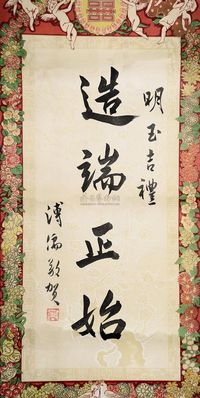 明玉吉禮
造端正始
溥儒敬賀